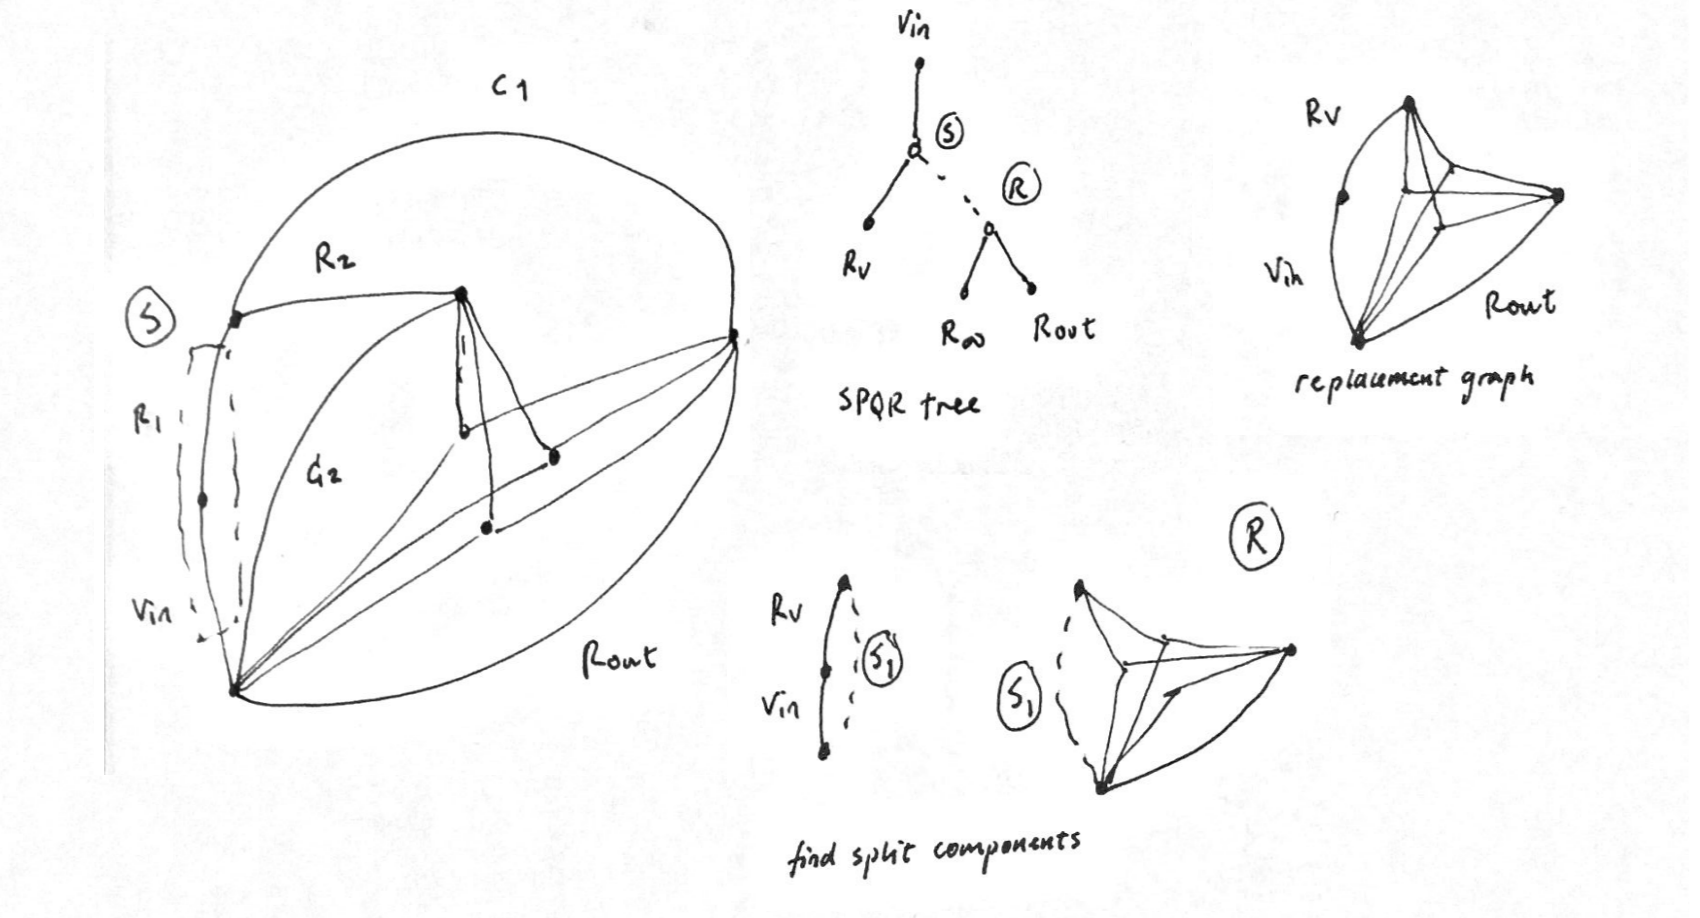 C1
R2
S
R1
C2
Vin
Rout
Vin
S
R
Rv
R∞
Rout
SPQR tree
Rv
Vin
Rout
replacement graph
R
Rv
S1
Vin
S1
find split components